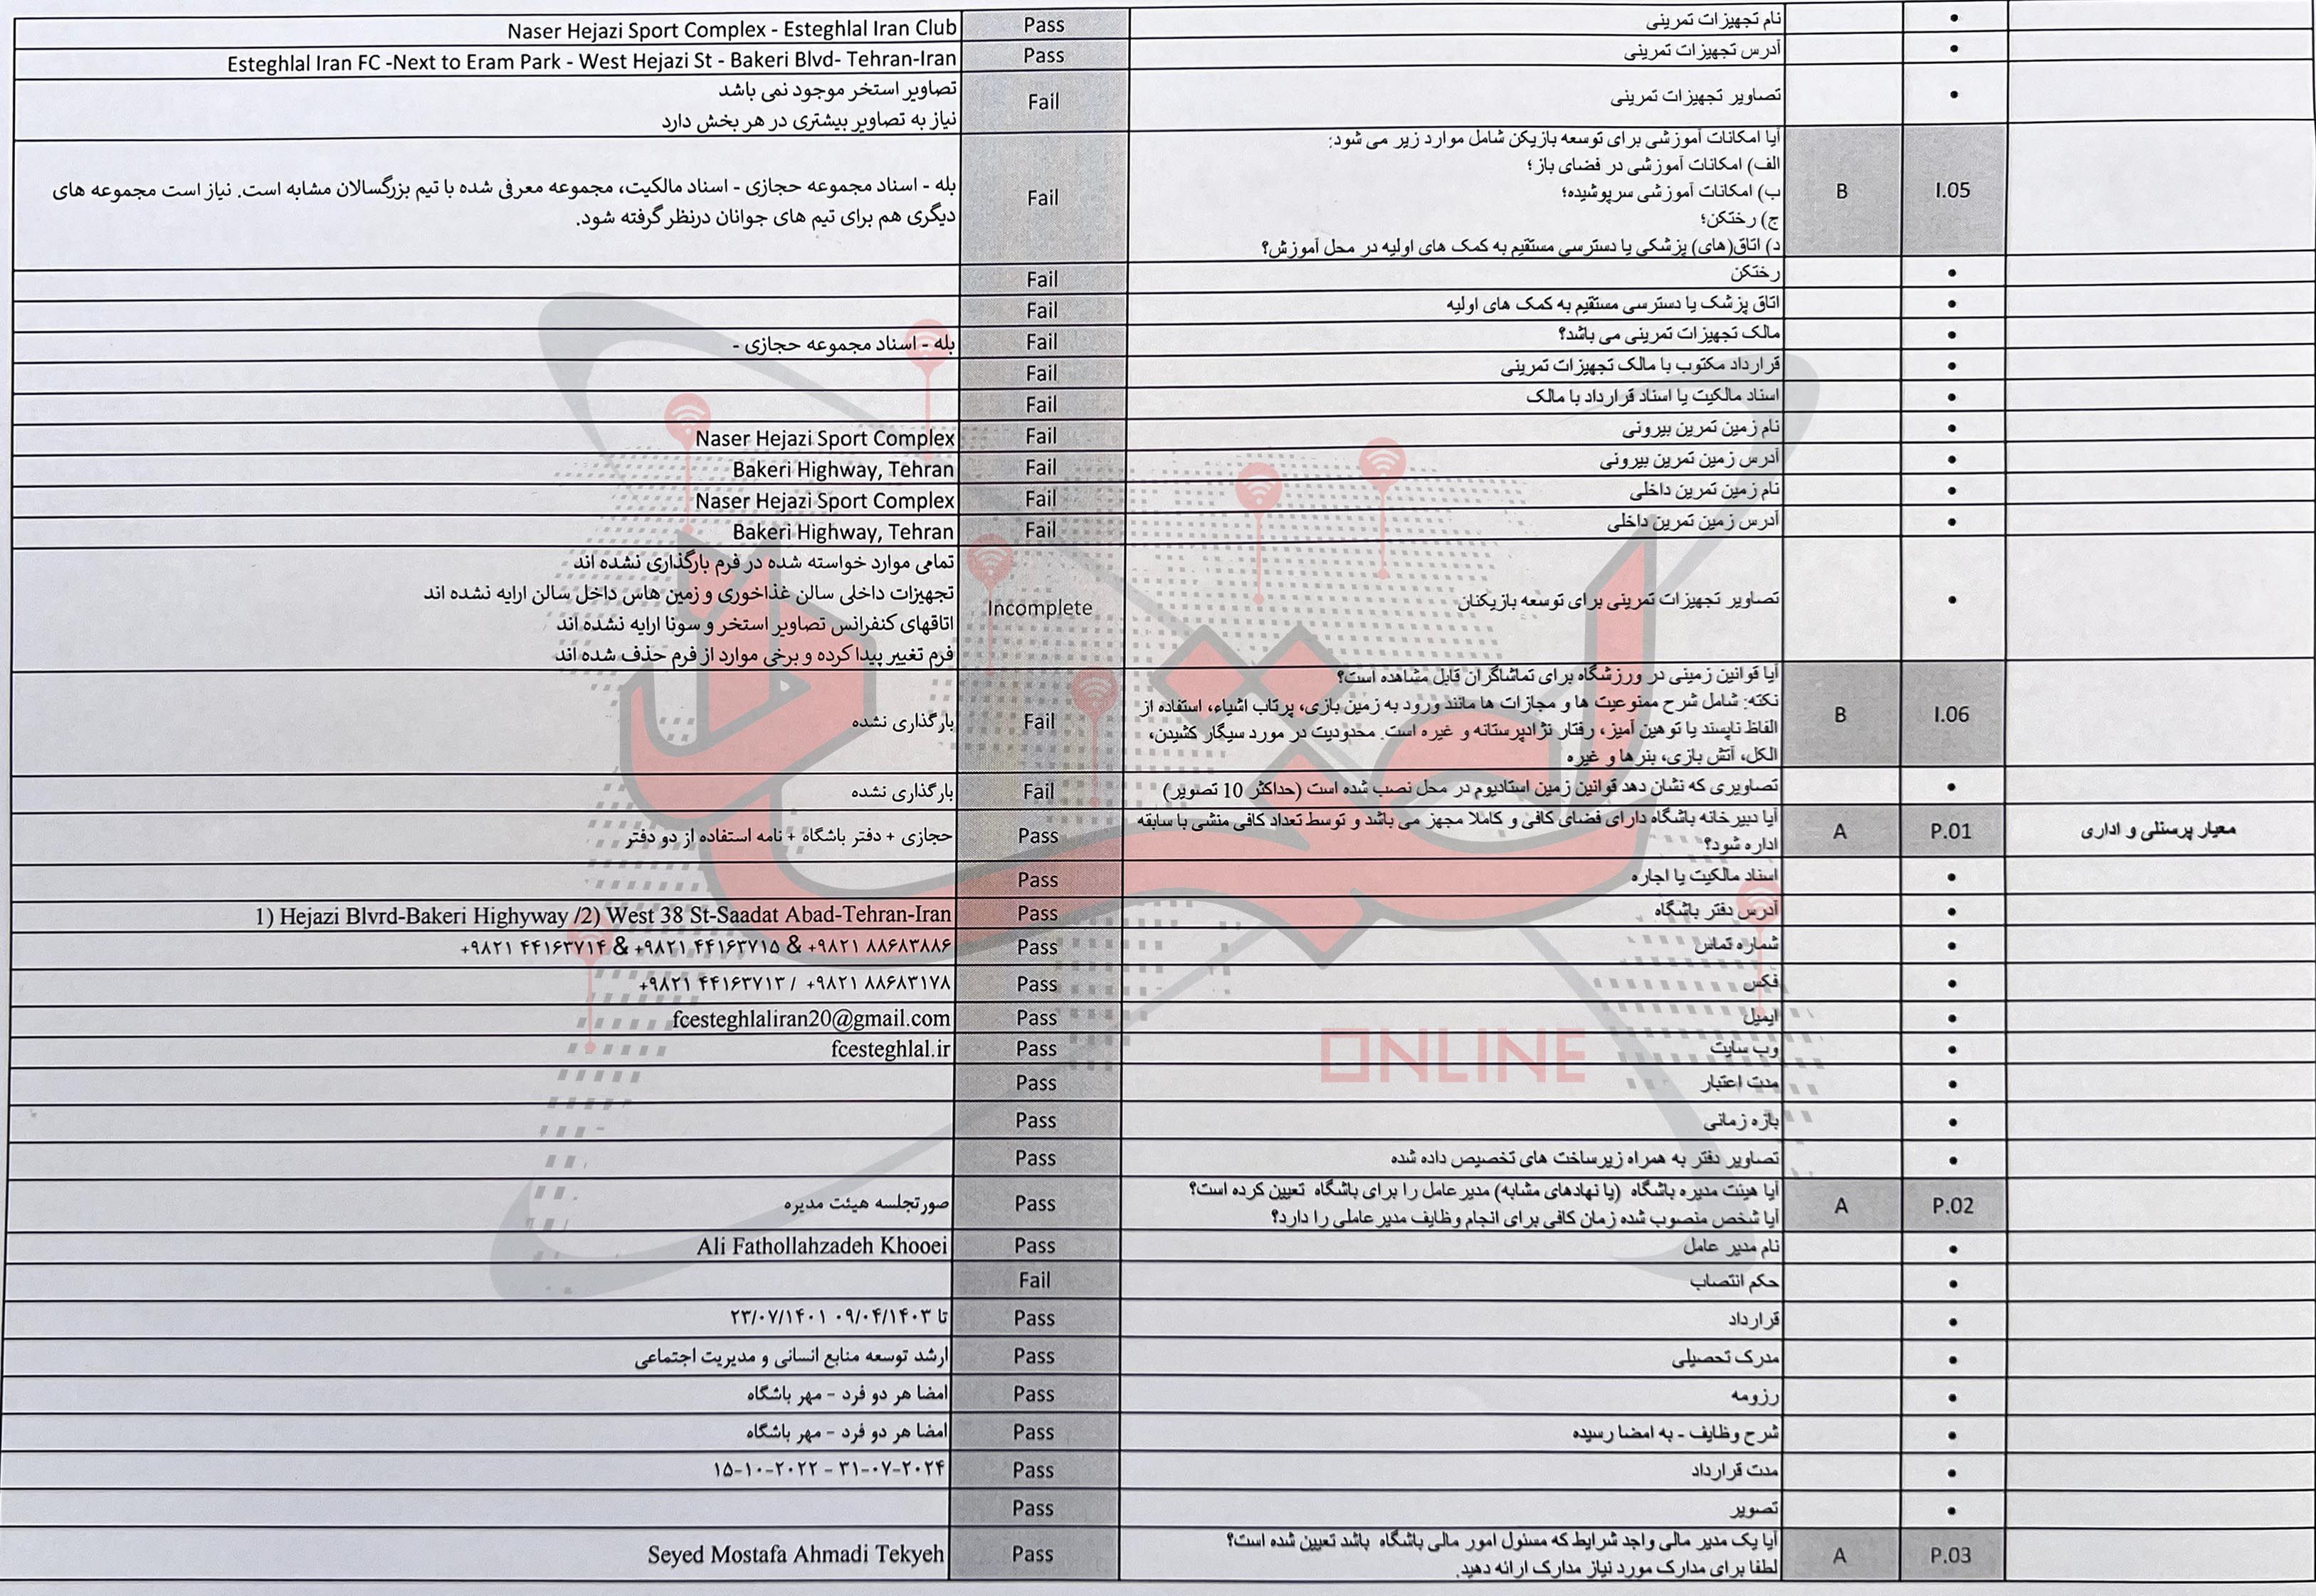 • نام تجهیزات تمرینی Pass Naser Hejazi Sport Complex - Esteghlal Iran Club
• آدرس تجهیزات تمرینی Pass Esteghlal Iran FC -Next to Eram Park - West Hejazi St - Bakeri Blvd- Tehran-Iran
• تصاویر تجهیزات تمرینی Fail تصاویر استخر موجود نمی باشد
نیاز به تصاویر بیشتری در هر بخش دارد
I.05 B آیا امکانات آموزشی برای توسعه بازیکن شامل موارد زیر می شود:
الف) امکانات آموزشی در فضای باز؛
ب) امکانات آموزشی سرپوشیده؛
ج) رختکن؛
د) اتاق(های) پزشکی یا دسترسی مستقیم به کمک های اولیه در محل آموزش؟
Fail
بله - اسناد مجموعه حجازی - اسناد مالکیت، مجموعه معرفی شده با تیم بزرگسالان مشابه است. نیاز است مجموعه های
دیگری هم برای تیم های جوانان درنظر گرفته شود.
• رختکن Fail
• اتاق پزشک یا دسترسی مستقیم به کمک های اولیه Fail
• مالک تجهیزات تمرینی می باشد؟ Fail بله - اسناد مجموعه حجازی -
• قرارداد مکتوب با مالک تجهیزات تمرینی Fail
• اسناد مالکیت یا اسناد قرارداد با مالک Fail
• نام زمین تمرین بیرونی Fail Naser Hejazi Sport Complex
• آدرس زمین تمرین بیرونی Fail Bakeri Highway, Tehran
• نام زمین تمرین داخلی Fail Naser Hejazi Sport Complex
• آدرس زمین تمرین داخلی Fail Bakeri Highway, Tehran
• تصاویر تجهیزات تمرینی برای توسعه بازیکنان Incomplete
تمامی موارد خواسته شده در فرم بارگذاری نشده اند
تجهیزات داخلی سالن غذاخوری و زمین هاس داخل سالن ارایه نشده اند
اتاقهای کنفرانس تصاویر استخر و سونا ارایه نشده اند
فرم تغییر پیدا کرده و برخی موارد از فرم حذف شده اند
I.06 B آیا قوانین زمینی در ورزشگاه برای تماشاگران قابل مشاهده است؟
نکته: شامل شرح ممنوعیت ها و مجازات ها مانند ورود به زمین بازی، پرتاب اشیاء، استفاده از
الفاظ ناپسند یا توهین آمیز، رفتار نژادپرستانه و غیره است. محدودیت در مورد سیگار کشیدن،
الکل، آتش بازی، بنرها و غیره
Fail بارگذاری نشده
• تصاویری که نشان دهد قوانین زمین استادیوم در محل نصب شده است (حداکثر 10 تصویر) Fail بارگذاری نشده
معیار پرسنلی و اداری P.01 A آیا دبیرخانه باشگاه دارای فضای کافی و کاملا مجهز می باشد و توسط تعداد کافی منشی با سابقه
اداره شود؟
Pass حجازی + دفتر باشگاه + نامه استفاده از دو دفتر
• اسناد مالکیت یا اجاره Pass
• آدرس دفتر باشگاه Pass 1) Hejazi Blvrd-Bakeri Highyway /2) West 38 St-Saadat Abad-Tehran-Iran
• شماره تماس Pass +۹۸۲۱ ۴۴۱۶۳۷۱۴ & +۹۸۲۱ ۴۴۱۶۳۷۱۵ & +۹۸۲۱ ۸۸۶۸۳۸۸۶
• فکس Pass +۹۸۲۱ ۴۴۱۶۳۷۱۳ / +۹۸۲۱ ۸۸۶۸۳۱۷۸
• ایمیل Pass fcesteghlaliran20@gmail.com
• وب سایت Pass fcesteghlal.ir
ONLINE
• مدت اعتبار Pass
• بازه زمانی Pass
• تصاویر دفتر به همراه زیرساخت های تخصیص داده شده Pass
P.02 A آیا هیئت مدیره باشگاه (یا نهادهای مشابه) مدیر عامل را برای باشگاه تعیین کرده است؟
آیا شخص منصوب شده زمان کافی برای انجام وظایف مدیر عاملی را دارد؟
Pass صورتجلسه هیئت مدیره
• نام مدیر عامل Pass Ali Fathollahzadeh Khooei
• حکم انتصاب Fail
• قرارداد Pass ۲۳/۰۷/۱۴۰۱ تا ۰۹/۰۴/۱۴۰۳
• مدرک تحصیلی Pass ارشد توسعه منابع انسانی و مدیریت اجتماعی
• رزومه Pass امضا هر دو فرد - مهر باشگاه
• شرح وظایف - به امضا رسیده Pass امضا هر دو فرد - مهر باشگاه
• مدت قرارداد Pass ۱۵-۱۰-۲۰۲۲ - ۳۱-۰۷-۲۰۲۴
• تصویر Pass
P.03 A آیا یک مدیر مالی واجد شرایط که مسئول امور مالی باشگاه باشد تعیین شده است؟
لطفا برای مدارک مورد نیاز مدارک ارائه دهید.
Pass Seyed Mostafa Ahmadi Tekyeh